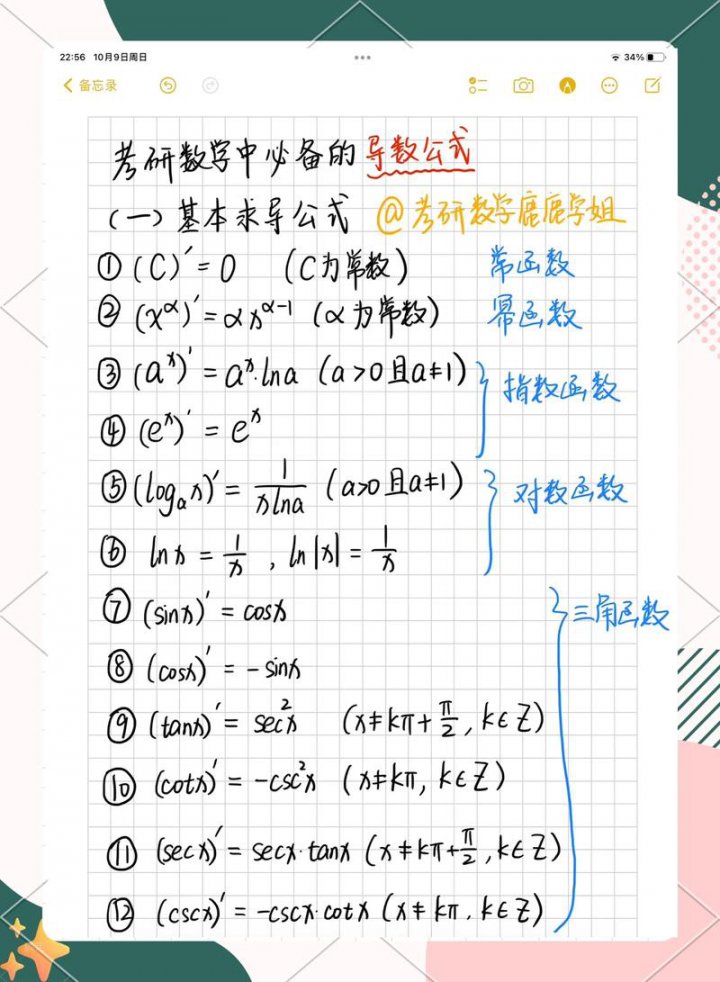 22:56 10月9日周日 34%
备忘录
考研数学中必备的导数公式
(一)基本求导公式 @考研数学鹿鹿学姐
① (C)′=0 (C为常数) 常函数
② (x^α)′=αx^(α-1) (α为常数) 幂函数
③ (a^x)′=a^x·lna (a>0且a≠1) 指数函数
④ (e^x)′=e^x
⑤ (log_a x)′=1/(xlna) (a>0且a≠1) 对数函数
⑥ lnx=1/x , ln|x|=1/x
⑦ (sinx)′=cosx 三角函数
⑧ (cosx)′=-sinx
⑨ (tanx)′=sec²x (x≠kπ+π/2, k∈Z)
⑩ (cotx)′=-csc²x (x≠kπ, k∈Z)
⑪ (secx)′=secx·tanx (x≠kπ+π/2, k∈Z)
⑫ (cscx)′=-cscx·cotx (x≠kπ, k∈Z)